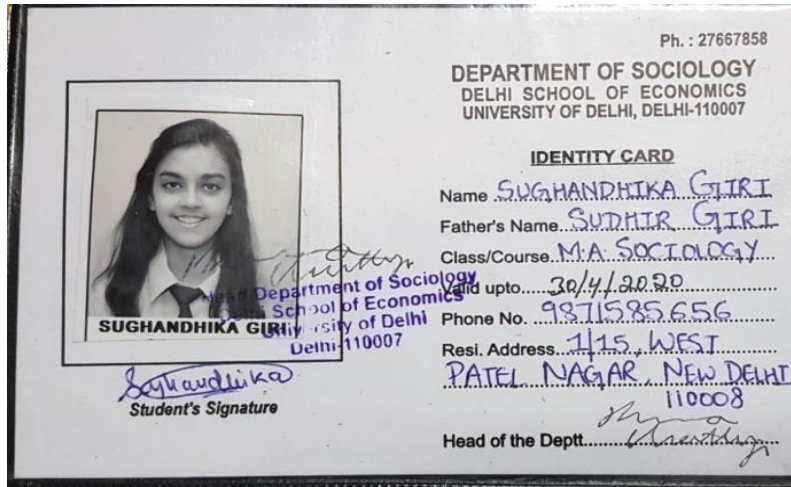 Ph. : 27667858
DEPARTMENT OF SOCIOLOGY
DELHI SCHOOL OF ECONOMICS
UNIVERSITY OF DELHI, DELHI-110007
IDENTITY CARD
Name SUGHANDHIKA GIRI
Father's Name SUDHIR GIRI
Class/Course M.A. SOCIOLOGY
Valid upto 30/4/2020
Phone No. 9871585656
Resi. Address 1/15, WEST
PATEL NAGAR, NEW DELHI
110008
Head of the Deptt.
SUGHANDHIKA GIRI
Head Department of Sociology
Delhi School of Economics
University of Delhi
Delhi-110007
Sughandhika
Student's Signature